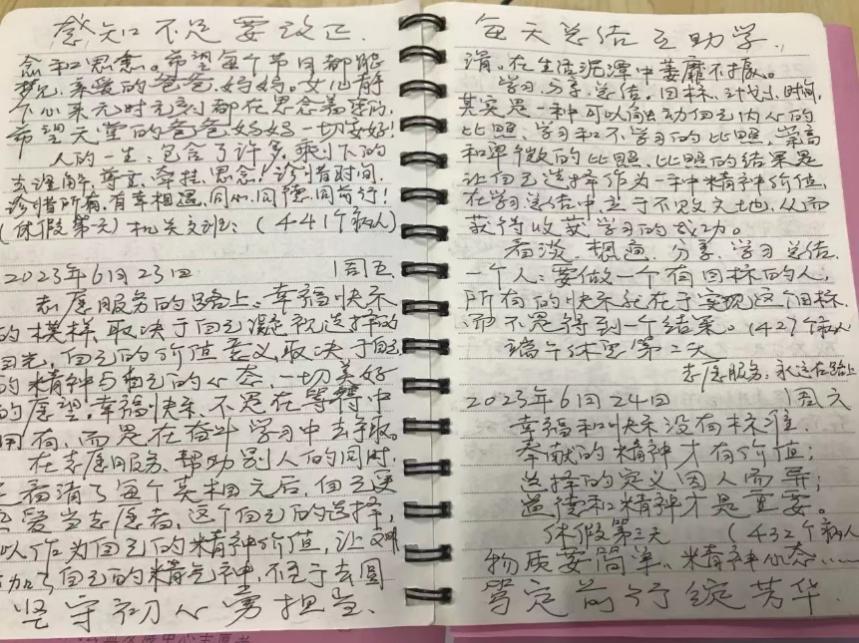 感知不足要改正.
念和思念。希望每个节日都能
梦见,亲爱的爸爸、妈妈。女儿静
下心来无时无刻都在思念着您们,
希望天堂的爸爸妈妈一切安好!
人的一生:包含了许多,剩下的
去理解,尊重,牵挂,思念!珍惜时间,
珍惜所有,有幸相遇,同心,同德,同前行!
(休假第一天)机关文班:(441个病人)
2023年6月23日 1周五
志愿服务的路上:幸福快乐
的模样,取决于自己凝视选择的
目光,自己的价值意义取决于自己
的精神与自己的心态,一切美好
的愿望,幸福快乐,不是在等待中
拥有,而是在奋斗学习中去争取。
在志愿服务、帮助别人的同时,
看清了每个真相之后,自己更
爱当志愿者,这个自己的选择,
以作为自己的精神价值,让
加了自己的精气神,不至于去圆
坚守初心勇担当.
每天总结互助学.
滑。在生活泥潭中萎靡不振。
学习、分享、总结,目标、计划、时间,
其实是一种可以触动自己内心的
比照、学习和不学习的比照,崇高
和卑微的比照、比照的结果是
让自己选择作为一种精神价值,
在学习总结中,立于不败之地,从而
获得收获学习的成功。
看淡、想通、分享、学习总结.
一个人:要做一个有目标的人,
所有的快乐就在于实现这个目标,
而不是得到一个结果。(427个病人
端午休息第二天
志愿服务,永远在路上
2023年6月24日 1周六
幸福和快乐没有标准.
奉献的精神才有价值;
选择的定义因人而异;
道德和精神才是重要。
休假第三天 (432个病人
物质要简单、精神心态......
笃定前行绽芳华.